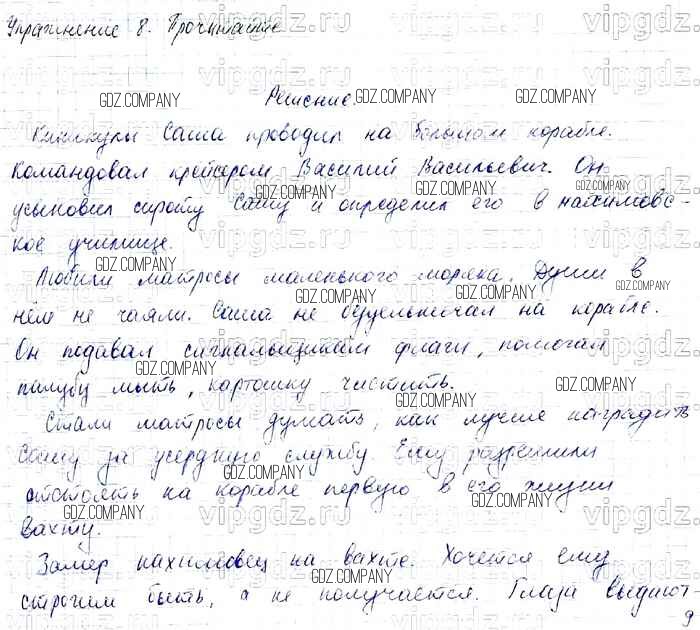 Упражнение 8. Прочитайте
Решение.
Каникулы Саша проводил на большом корабле.
Командовал крейсером Василий Васильевич. Он
усыновил сироту Сашу и определил его в нахимовс-
кое училище.
Любили матросы маленького моряка. Души в
нём не чаяли. Саша не бездельничал на корабле.
Он подавал сигнальщикам флаги, помогал
палубу мыть, картошку чистить.
Стали матросы думать, как лучше наградить
Сашу за усердную службу. Ему разрешили
отстоять на корабле первую в его жизни
вахту.
Замер нахимовец на вахте. Хочется ему
строгим быть, а не получается. Глаза выдают
9
vipgdz.ru
GDZ.COMPANY